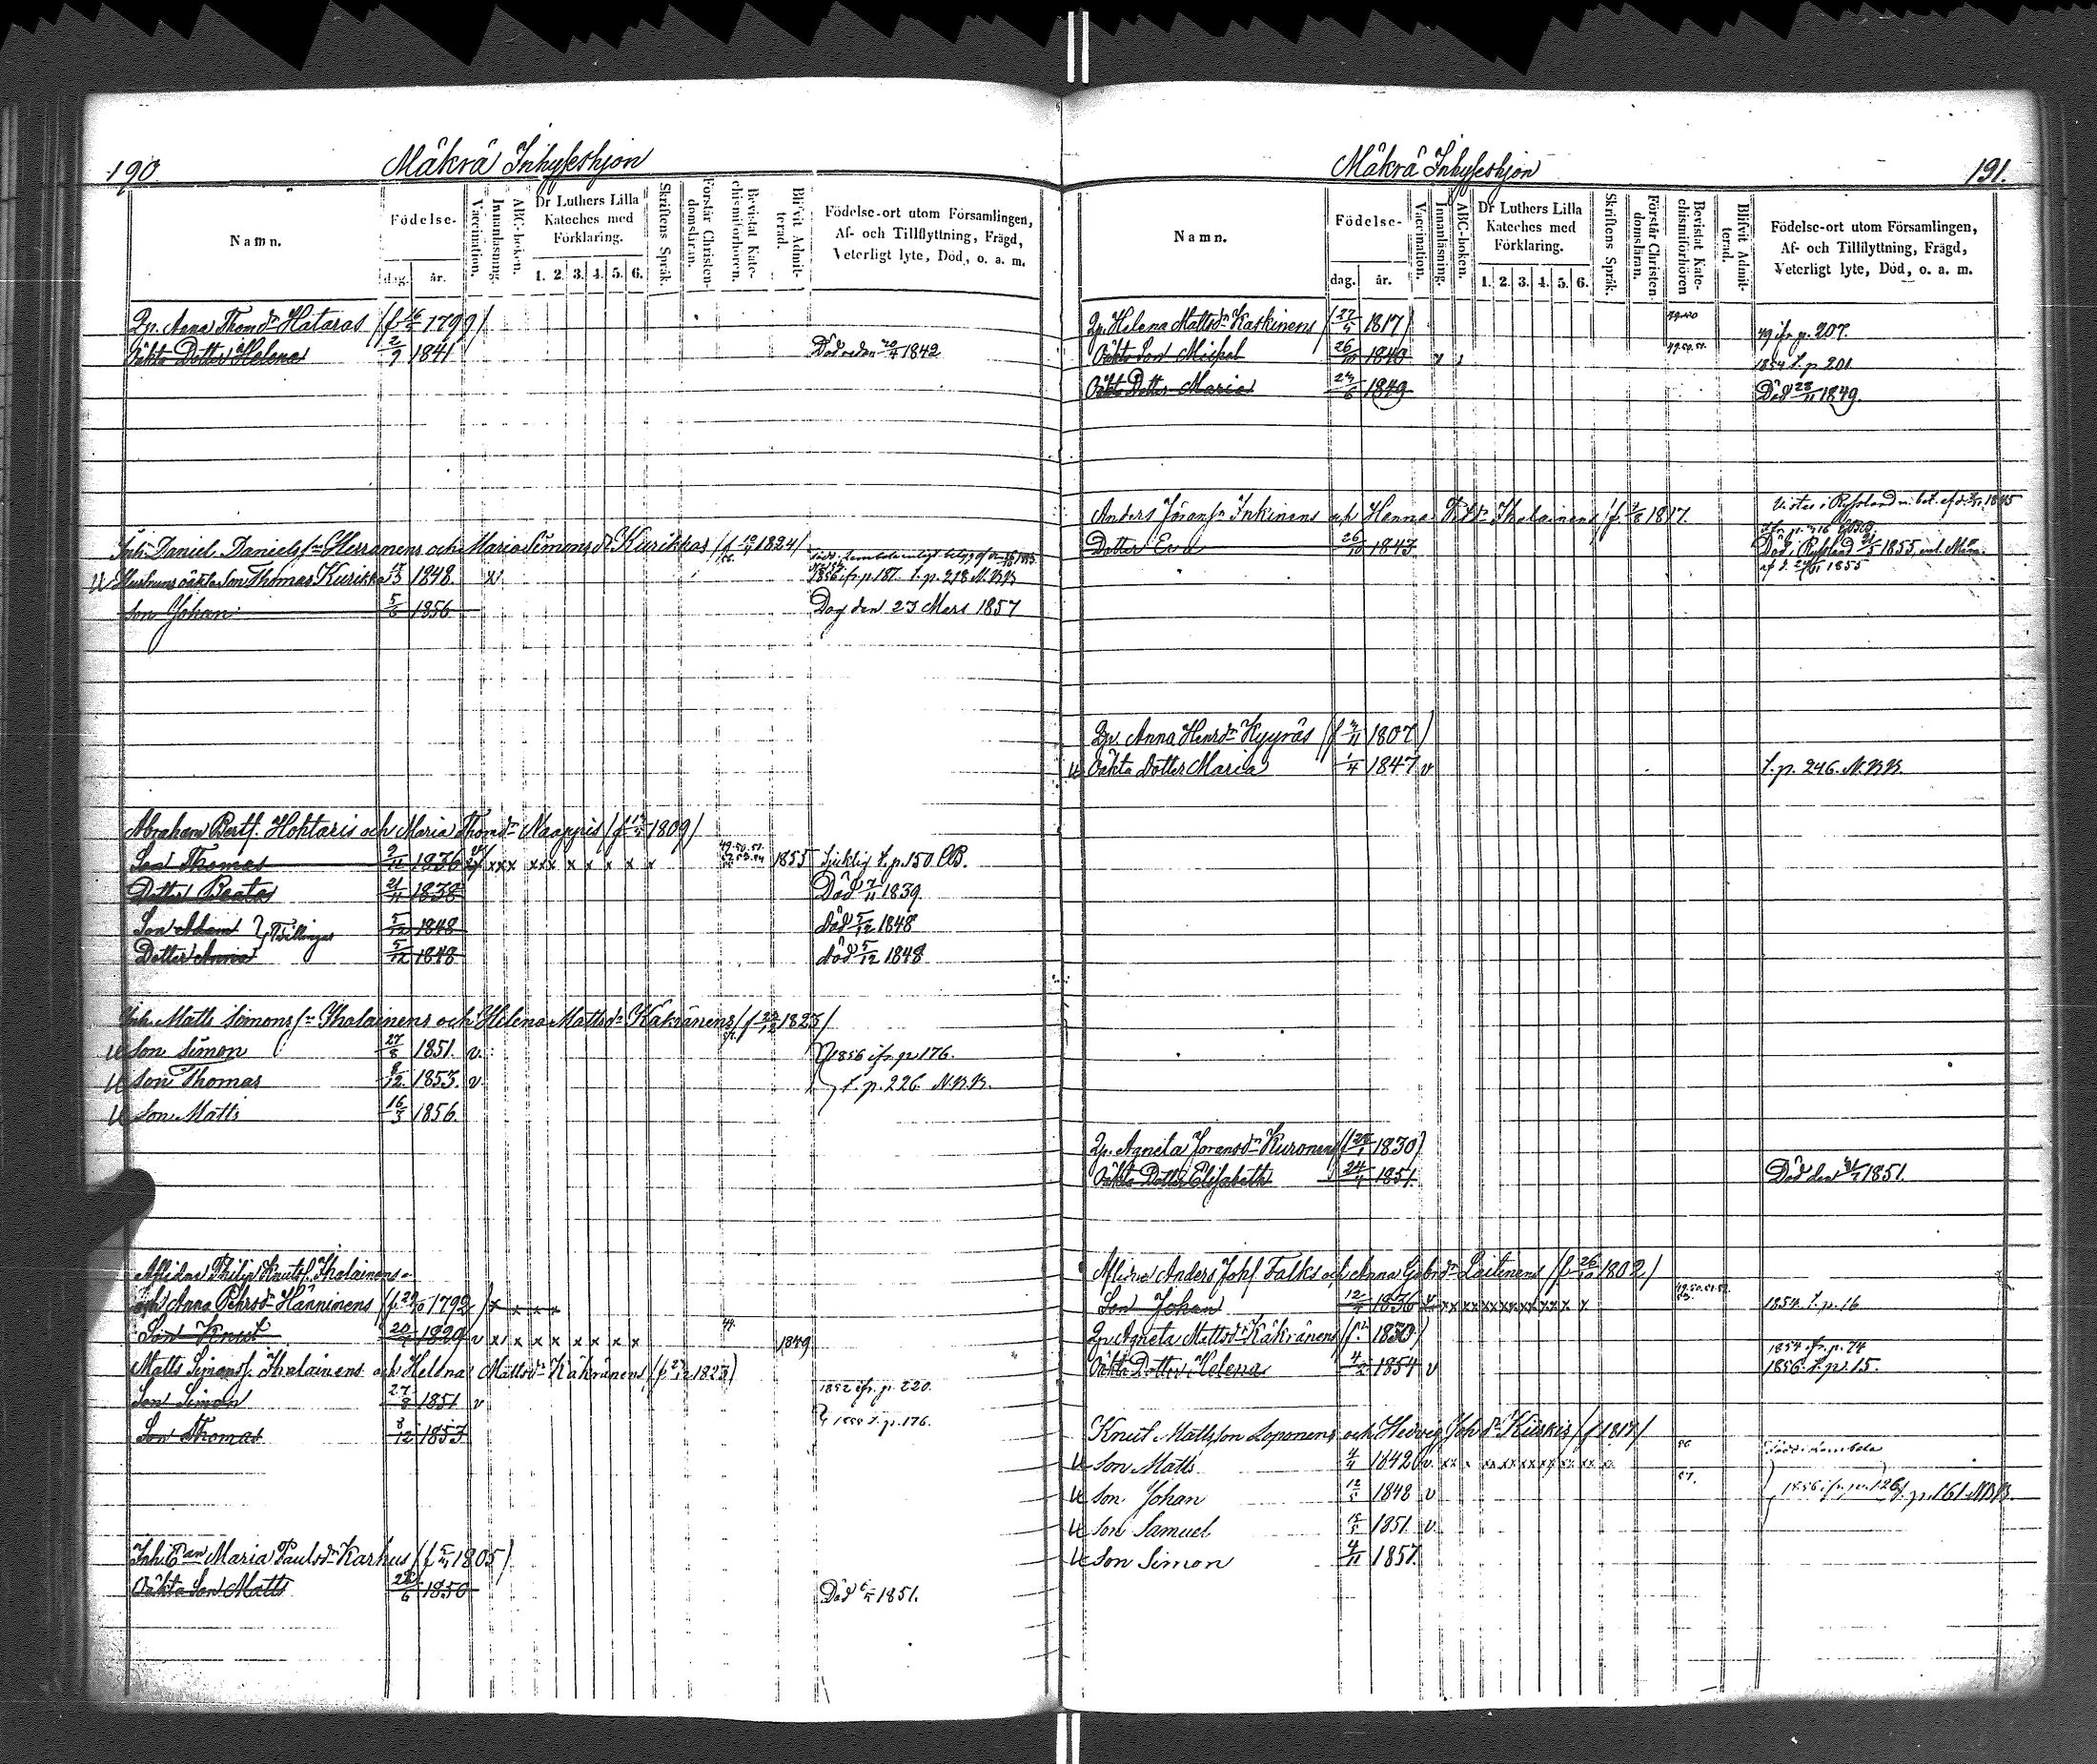 190.
Mäkrä Inhyseshjon
Namn.
Födelse-
dag. år.
Vaccination.
Innanläsning.
ABC-boken.
Dr Luthers Lilla
Kateches med
Förklaring.
1. 2. 3. 4. 5. 6.
Skriftens Språk.
Förstår Christendomsläran.
Bevistat Katechismiförhören.
Blifvit Admitterad.
Födelse-ort utom Församlingen,
Af- och Tillflyttning, Frägd,
Veterligt lyte, Död, o. a. m.
Qp. Anna Thom.dr Hataras (f. 1799)
Oäkta Dotter Helena 2/7 1841 Död den 1842
Inh. Daniel Daniels sn Herranens och Maria Simons dr Kurikkas (f. 1824)
Hustruns oäkta Son Thomas Kurikka 1848. v 1856 ifr. p. 187. t. p. 218 N.B.B.
Son Johan 5/6 1856. Dog den 23 Mars 1857
Abraham Bertf. Hohtaris och Maria Thom dr Naappis (f. 1809)
Son Thomas 2/11 1836 xxx xxx x x x x x 1855 Sjuklig t. p. 150
Dotter Beata 21/11 1838 Död 1839.
Son Adam } Tvillingar 5/12 1848 död 5/12 1848
Dotter Anna 5/12 1848 död 5/12 1848
Inh. Matts Simons sn Ihalainens och Helena Matts dr Käkränens (f. 1823)
U Son Simon 27/8 1851. v. 1856 ifr. p. 176.
U Son Thomas 8/12 1853. v. t. p. 226 N.B.B.
U Son Matts 16/3 1856.
Aflidne Philip Knutsf. Ihalainens
och Anna Pehrs dr Hänninens (f. 1792) x x x x
Son Knut 20/ 1829 v x x x x x x x x 49. 1849
Matts Simonsf. Ihalainens och Helena Matts dr Käkränens (f. 1823)
Son Simon 27/8 1851 v 1852 ifr. p. 220.
Son Thomas 8/12 1853 t. p. 176.
Inh. Maria Pauls dr Karhus (f. 1805)
Oäkta Son Matts /6 1850 Död 1851.
Mäkrä Inhyseshjon
191.
Namn.
Födelse-
dag. år.
Vaccination.
Innanläsning.
ABC-boken.
Dr Luthers Lilla
Kateches med
Förklaring.
1. 2. 3. 4. 5. 6.
Skriftens Språk.
Förstår Christendomsläran.
Bevistat Katechismiförhören
Blifvit Admitterad.
Födelse-ort utom Församlingen,
Af- och Tillflyttning, Frägd,
Veterligt lyte, Död, o. a. m.
Qp. Helena Matts dr Kaskinens (27/5 1817) 49 ifr. p. 207.
Oäkta Son Michel 26/10 1840 49.50.51. 1854 t. p. 201
Oäkta Dotter Maria /6 1849 Död 28/11 1849.
Anders Göransn Inkinens och Henna dr Ihalainens (f. 1817.
Dotter Eva 26/10 1843 Död i Ryssland 1855
1855
Qp. Anna Henr dr Kyyräs (f. 1807)
U Oäkta Dotter Maria 1/4 1847 v t. p. 246. N.B.B.
Qp. Agneta Görans dr Kuronens (f. 1830)
Oäkta Dotter Elisabeth 24/4 1851. Död den 1851.
Aflidne Anders Johs. Falks och Anna Gabr dr Laitinens (f. 26/10 1802)
Son Johan 12/ 1836 1854. t. p. 16
Qp. Agneta Matts dr Käkränens (f. 1830) 1854 fr. p. 74
Oäkta Dotter Helena 4/2 1854 v 1856 t. p. 15.
Knut Mattsson Loponens och Hedvig Joh dr Kiiskis (f. 1817)
U Son Matts 4/11 1842 v.
U Son Johan 12/5 1848 v 1856 ifr. p. 126 t. p. 161 N.B.B.
U Son Samuel 15/5 1851. v.
U Son Simon 4/11 1857.